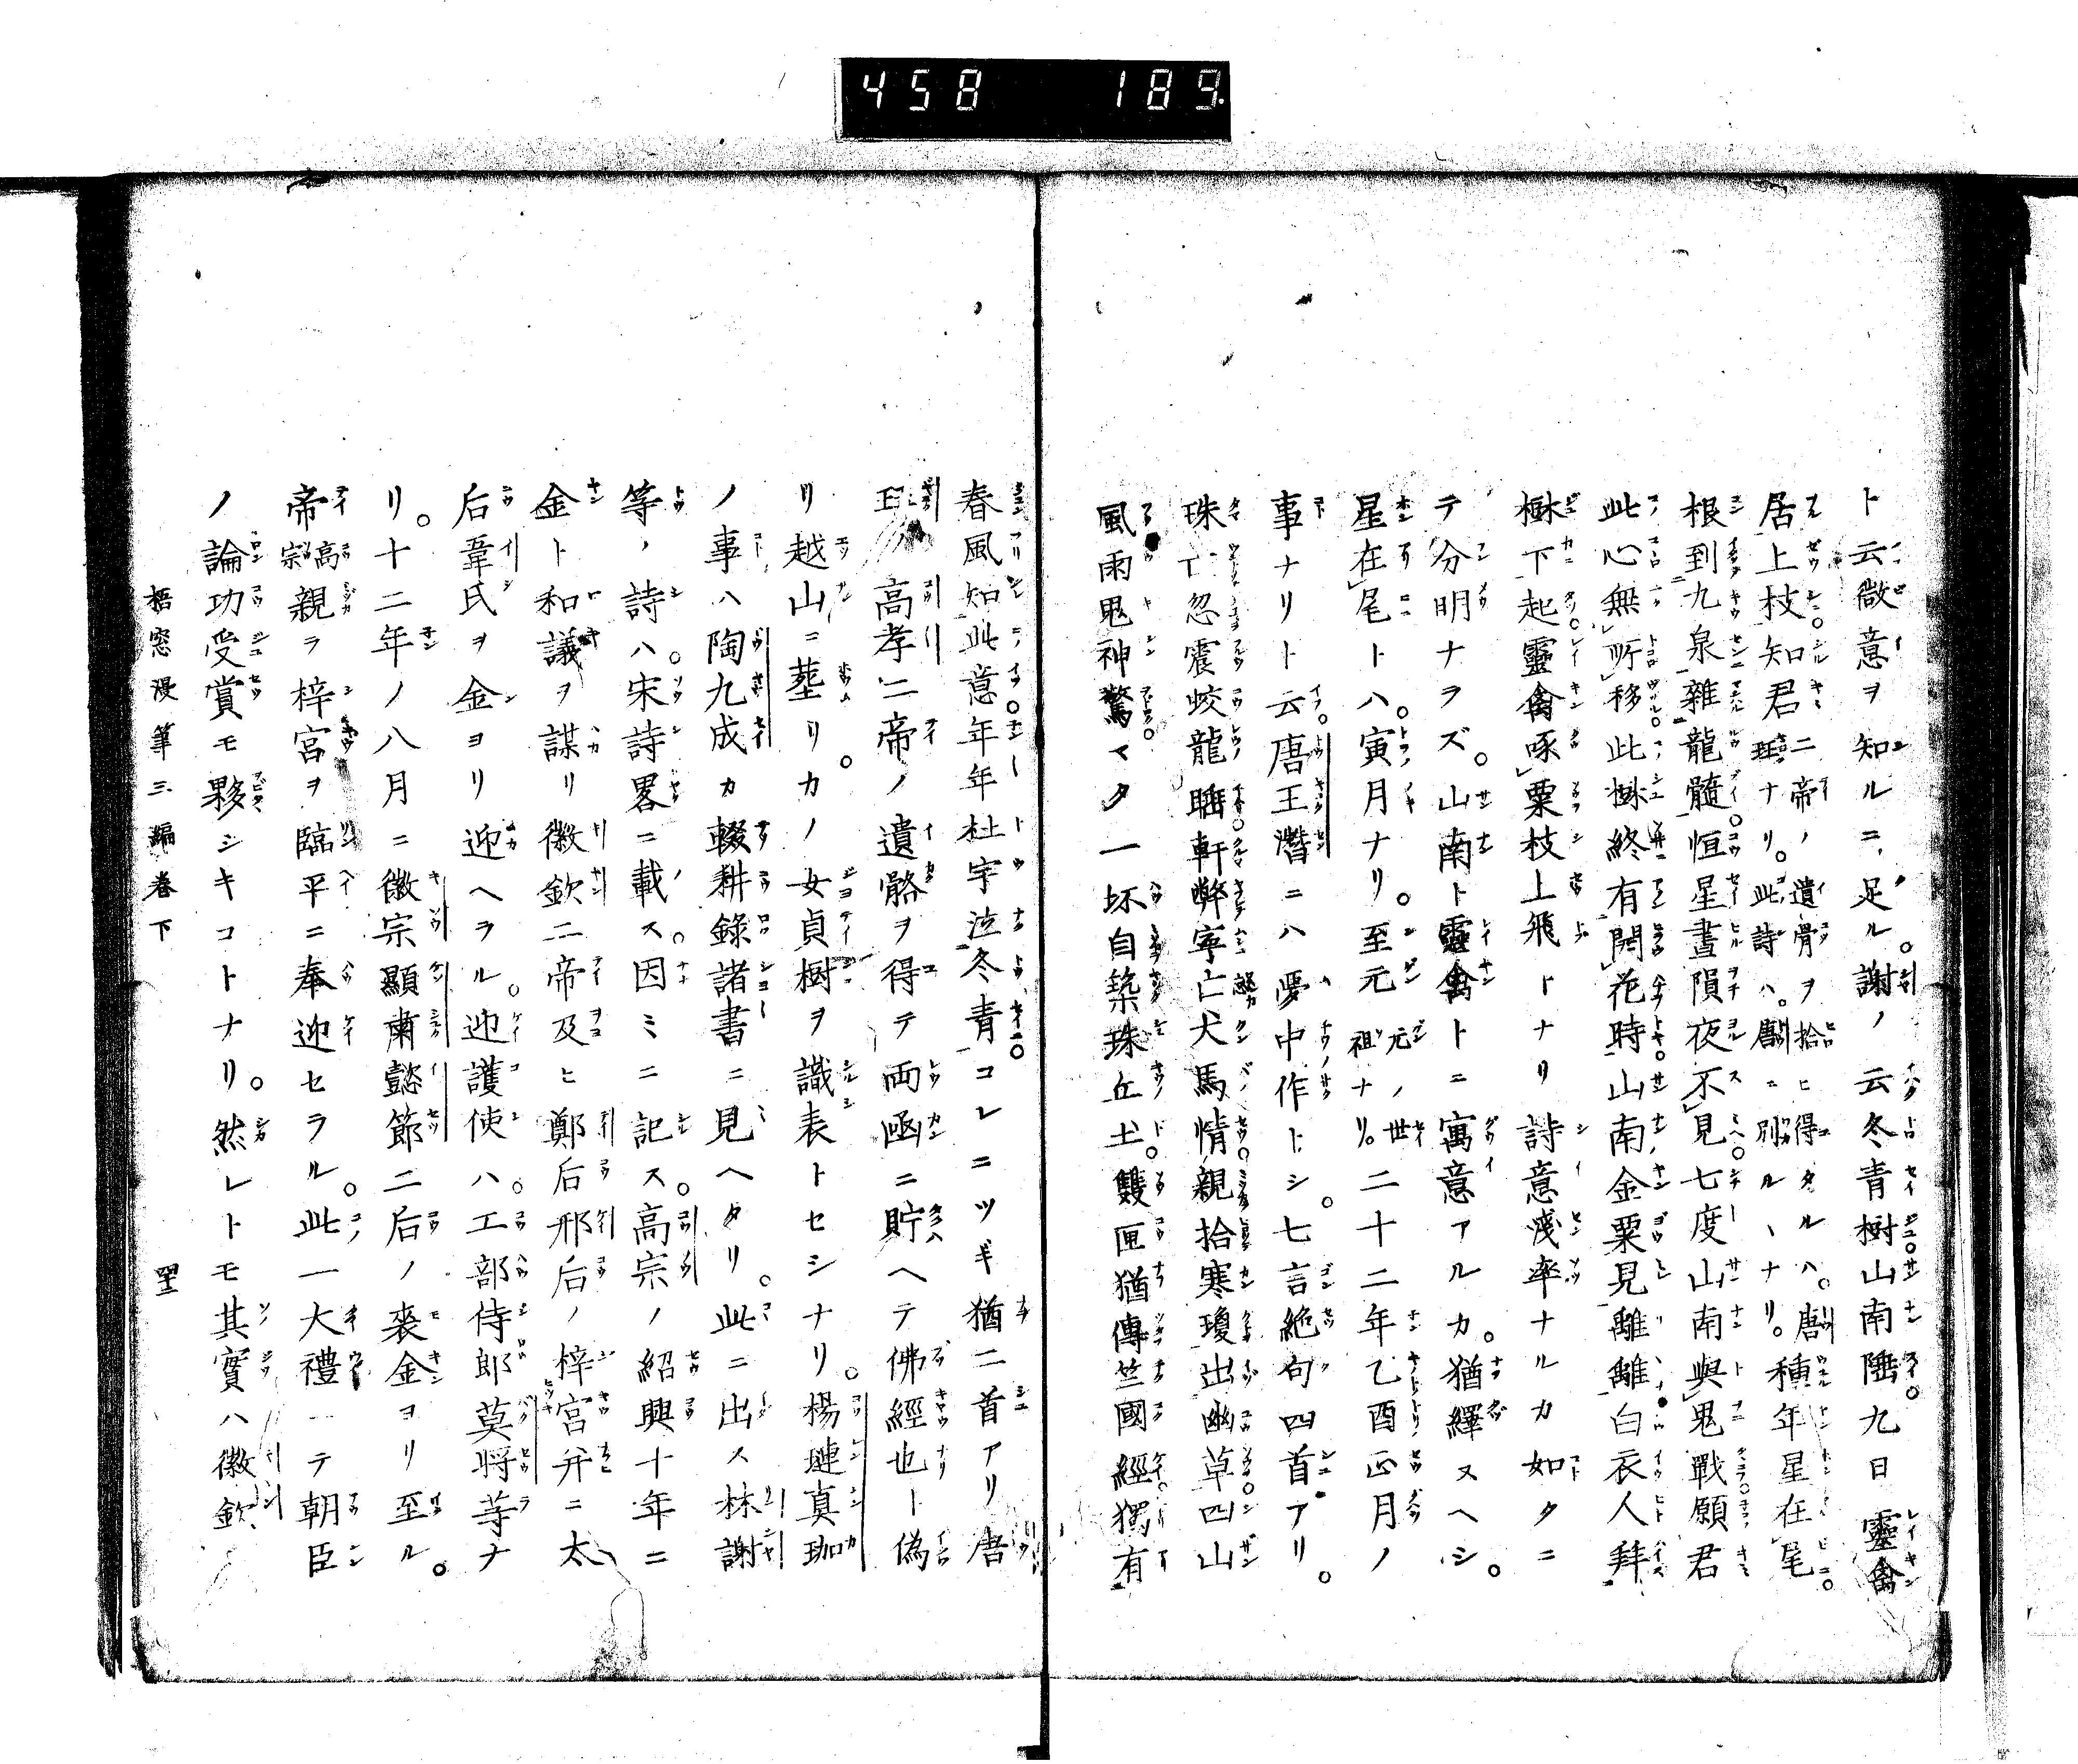 458 189
ト云微意ヲ知ルニ足ル。謝ノ云冬青樹山南陲。九日靈禽
居上枝知君 二帝ノ遺骨ヲ拾ヒ得タルハ。唐玨ナリ。此詩ハ。唐ニ別ルヽナリ。 種年星在尾。
根到九泉雜龍髓。恒星晝隕夜不見七度山南與鬼戰願君
此心無所移。此樹終有開花時。山南金粟見離離白衣人拜
樹下起。靈禽啄粟枝上飛トナリ詩意淺率ナルカ如クニ
テ分明ナラズ。山南ト靈禽トニ寓意アルカ。猶繹ヌヘシ。
星在尾トハ。寅月ナリ。至元 元ノ世祖ナリ。 二十二年乙酉正月ノ
事ナリト云フ。唐王潛ニハ夢中作トシ。七言絶句四首アリ。
珠亡忽震蛟龍睡。軒弊寧亡犬馬情。親拾寒瓊出幽草。四山
風雨鬼神驚。マタ一坏自築珠丘土。雙匣猶傳竺國經。獨有
春風知此意。年年杜宇泣冬青。コレニツギ猶二首アリ唐
玨ノ高孝二帝ノ遺骼ヲ得テ両凾ニ貯ヘテ佛經也ト偽
リ越山ニ塟リ。カノ女貞樹ヲ識表トセシナリ。楊璉真珈
ノ事ハ陶九成カ輟耕錄諸書ニ見ヘタリ。此ニ出ス林謝
等ノ詩ハ。宋詩畧ニ載ス。因ミニ記ス。高宗ノ紹興十年ニ
金ト和議ヲ謀リ徽欽二帝及ヒ鄭后邢后ノ梓宮并ニ太
后韋氏ヲ金ヨリ迎ヘラル。迎護使ハ。工部侍郎莫将等ナ
リ。十二年ノ八月ニ徽宗顯肅懿節二后ノ喪金ヨリ至ル。
帝 高宗 親ラ梓宮ヲ臨平ニ奉迎セラル。此一大禮ニテ朝臣
ノ論功受賞モ夥シキコトナリ。然レトモ其實ハ徽欽
梧窓漫筆三編巻下